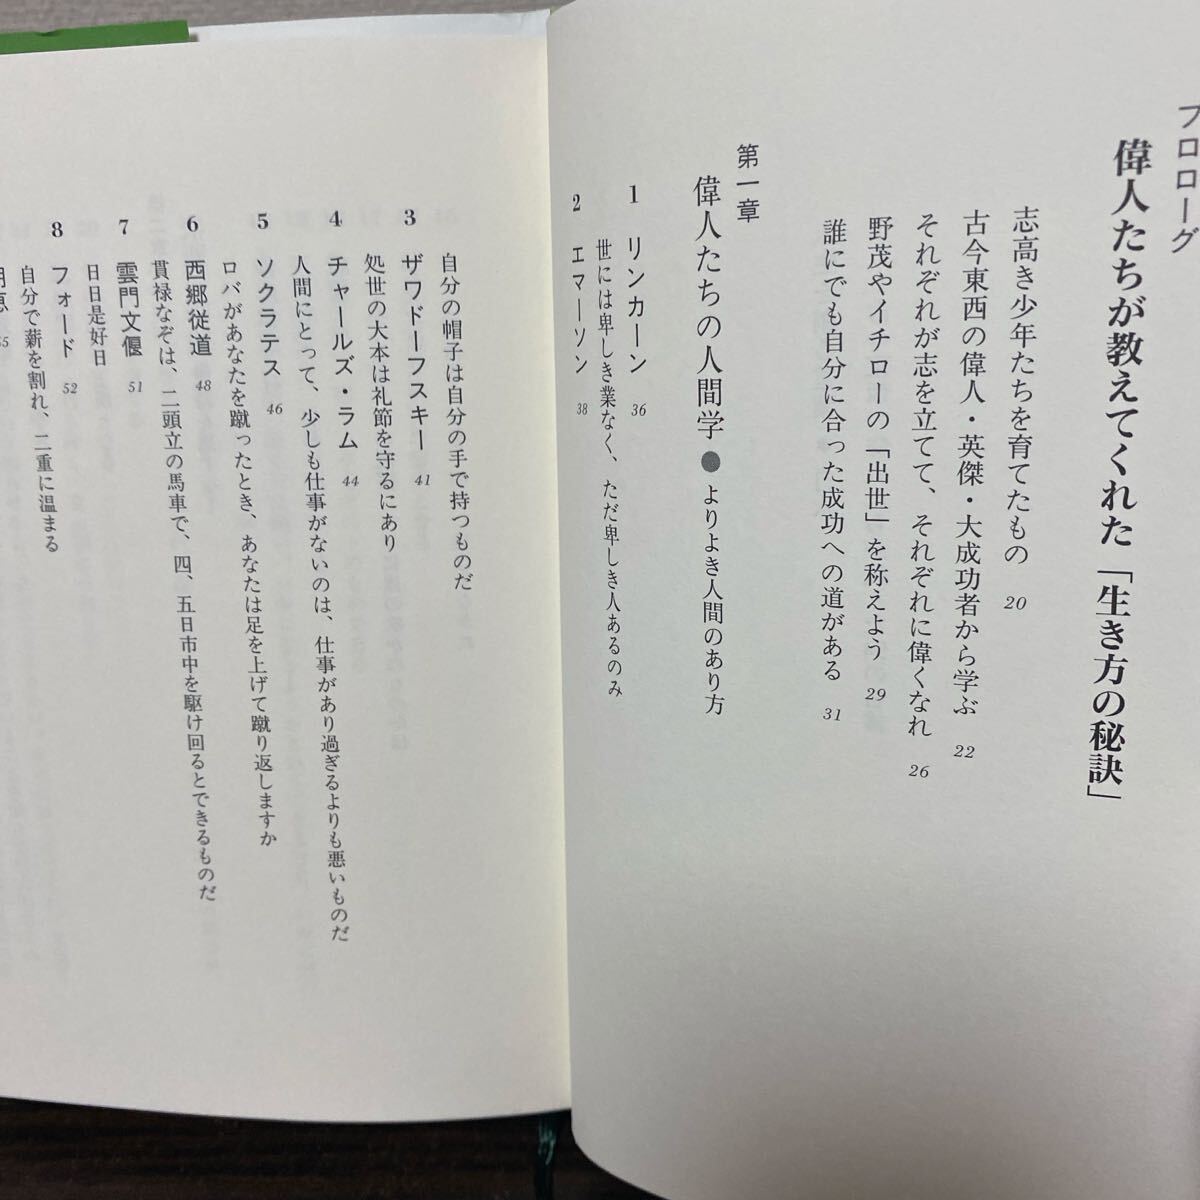 プロローグ
偉人たちが教えてくれた「生き方の秘訣」
志高き少年たちを育てたもの 20
古今東西の偉人・英傑・大成功者から学ぶ 22
それぞれが志を立てて、それぞれに偉くなれ 26
野茂やイチローの「出世」を称えよう 29
誰にでも自分に合った成功への道がある 31
第一章
偉人たちの人間学●よりよき人間のあり方
1 リンカーン 36
世には卑しき業なく、ただ卑しき人あるのみ
2 エマーソン 38
自分の帽子は自分の手で持つものだ
3 ザワドーフスキー 41
処世の大本は礼節を守るにあり
4 チャールズ・ラム 44
人間にとって、少しも仕事がないのは、仕事があり過ぎるよりも悪いものだ
5 ソクラテス 46
ロバがあなたを蹴ったとき、あなたは足を上げて蹴り返しますか
6 西郷従道 48
貫禄なぞは、二頭立の馬車で、四、五日市中を駆け回るとできるものだ
7 雲門文偃 51
日日是好日
8 フォード 52
自分で薪を割れ、二重に温まる